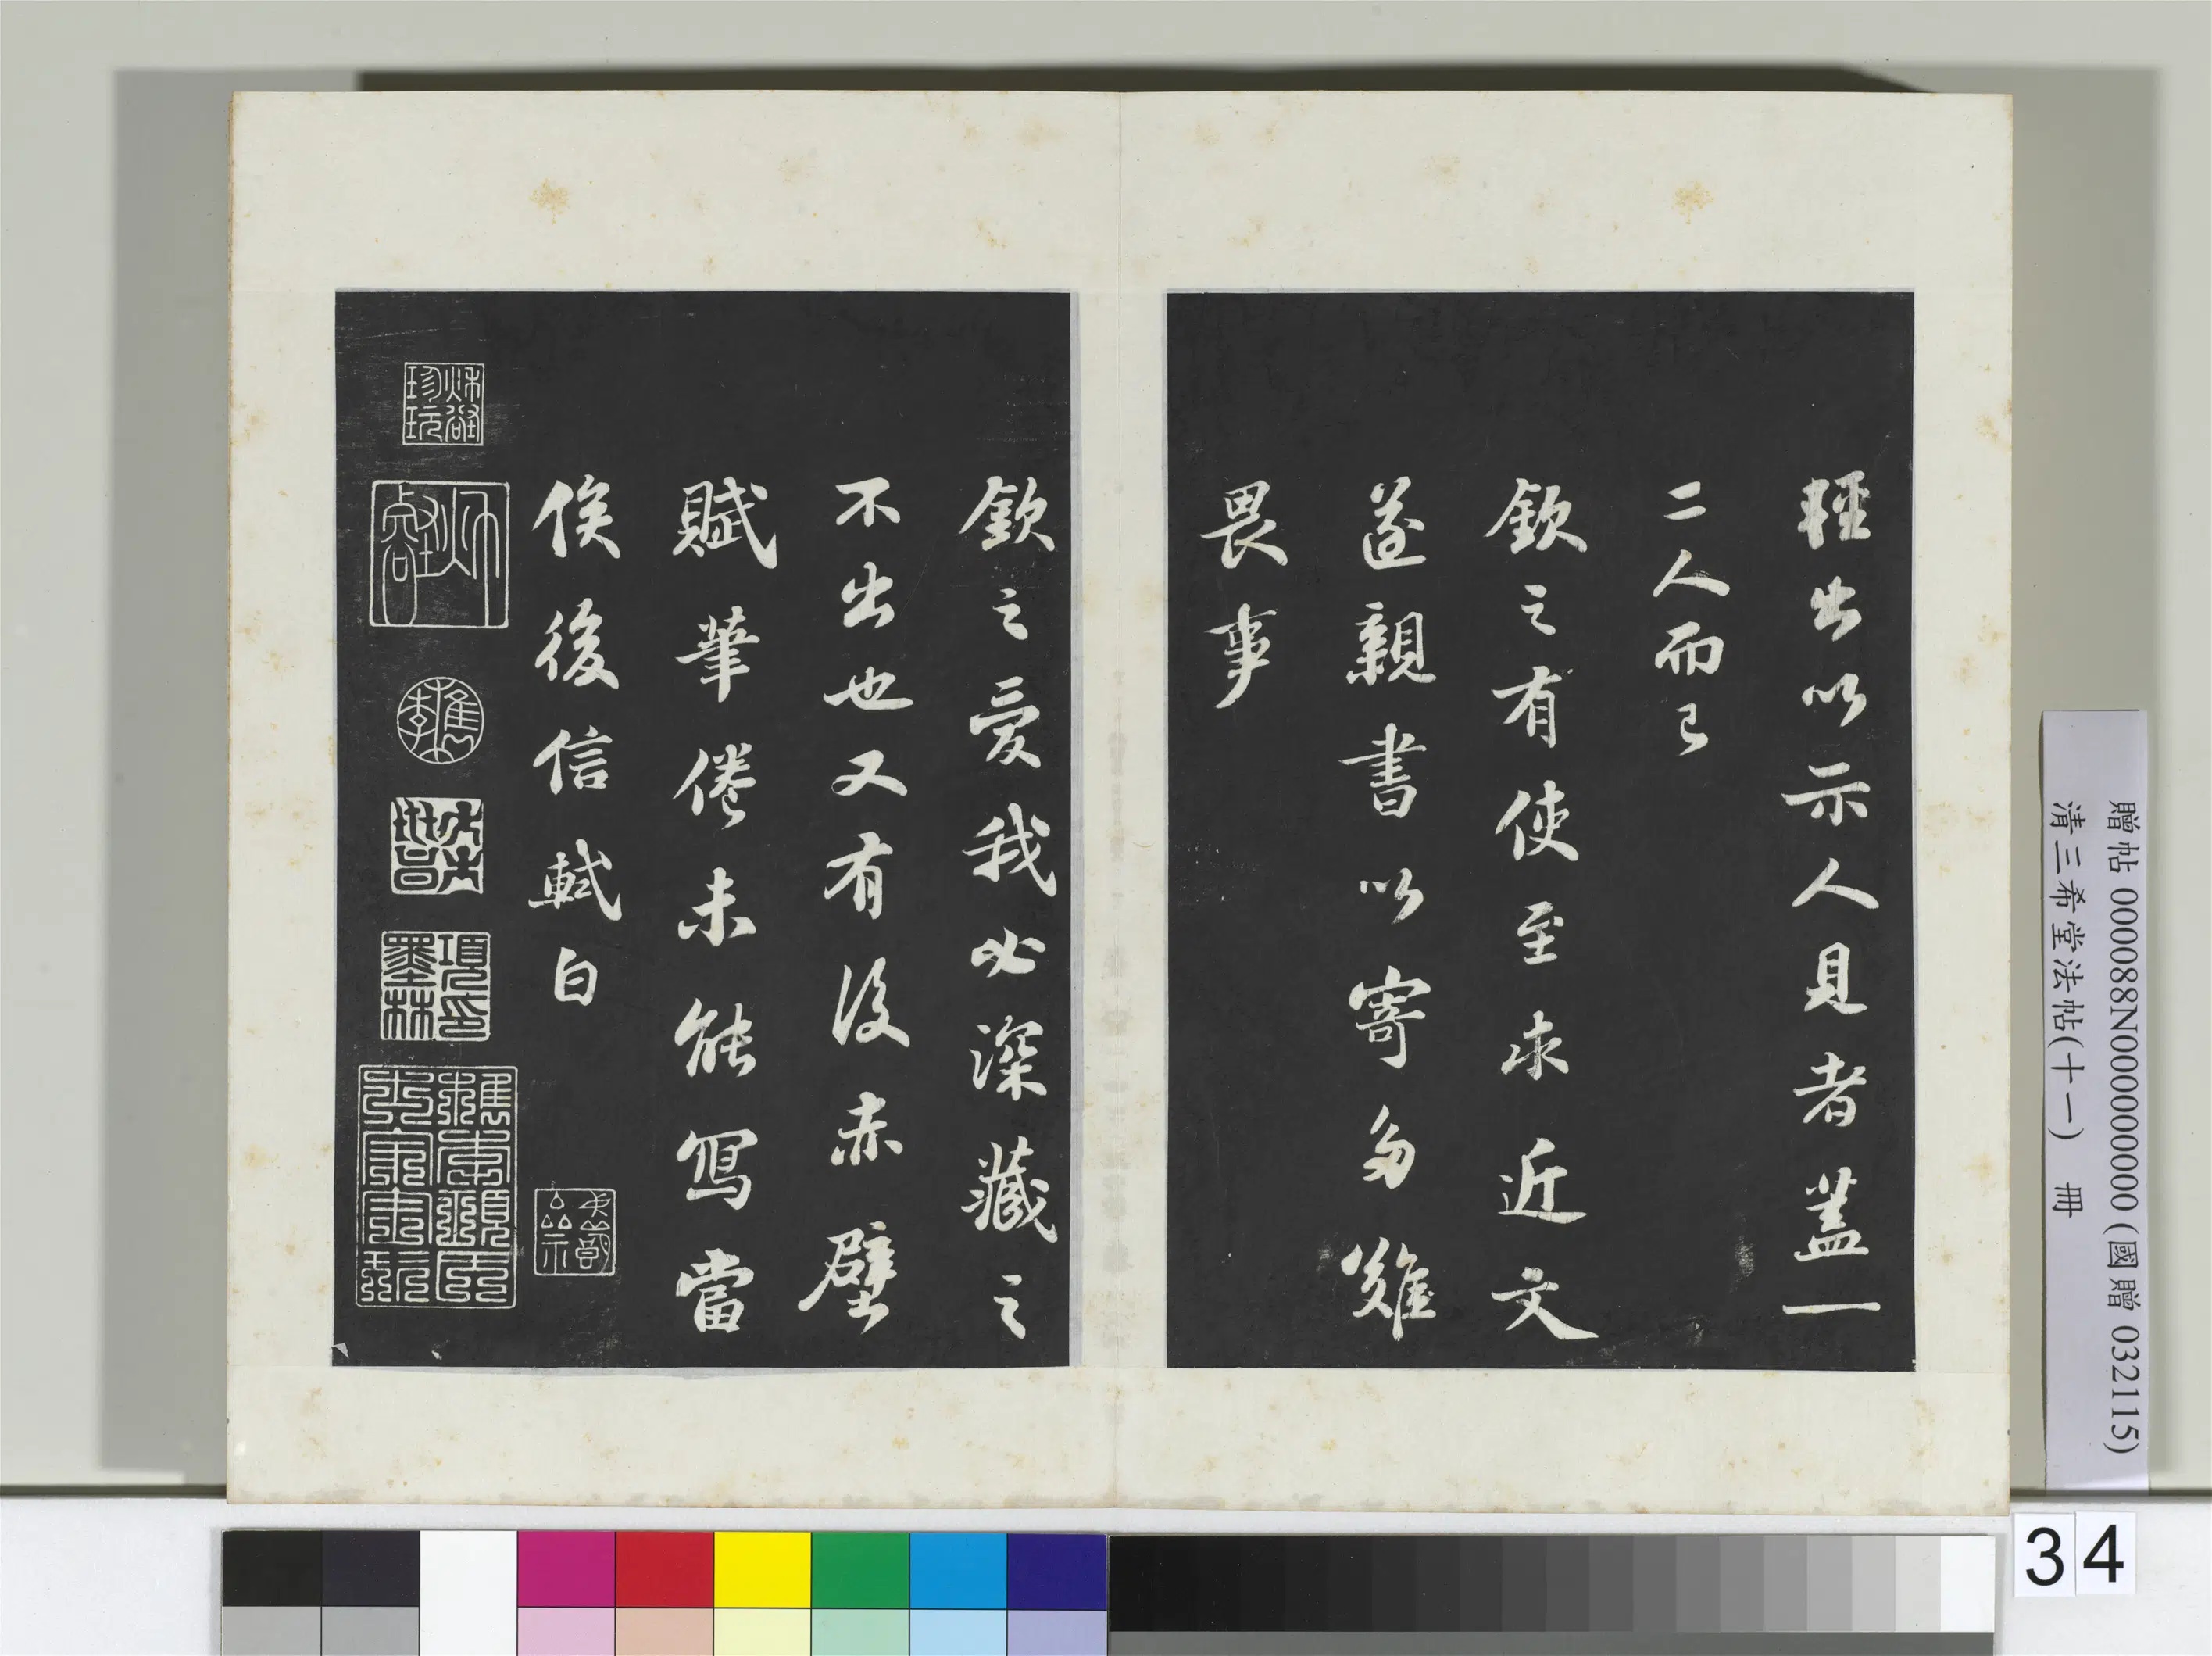 輕出以示人見者蓋一
二人而已
欽之有使至求近文
遂親書以寄多難
畏事
欽之愛我必深藏之
不出也又有後赤壁
賦筆倦未能寫當
俟後信軾白
珍玩
項墨林印
贈帖 000088N000000000 (國贈 032115)
清三希堂法帖(十一) 冊
34